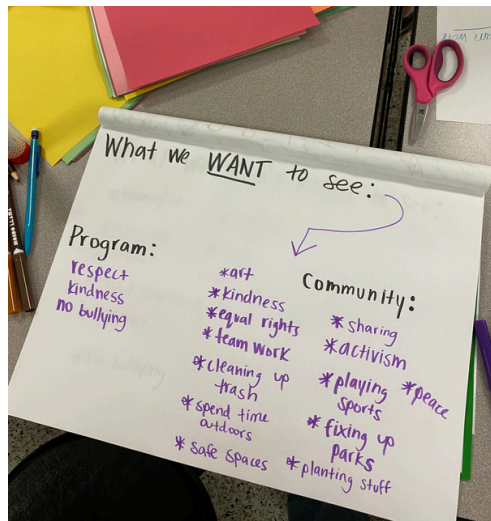 What we WANT to see:
Program:
respect
kindness
no bullying
*art
*kindness
*equal rights
*team work
*cleaning up
trash
*spend time
outdoors
*safe spaces
Community:
*sharing
*activism
*playing
sports
*peace
*fixing up
parks
*planting stuff